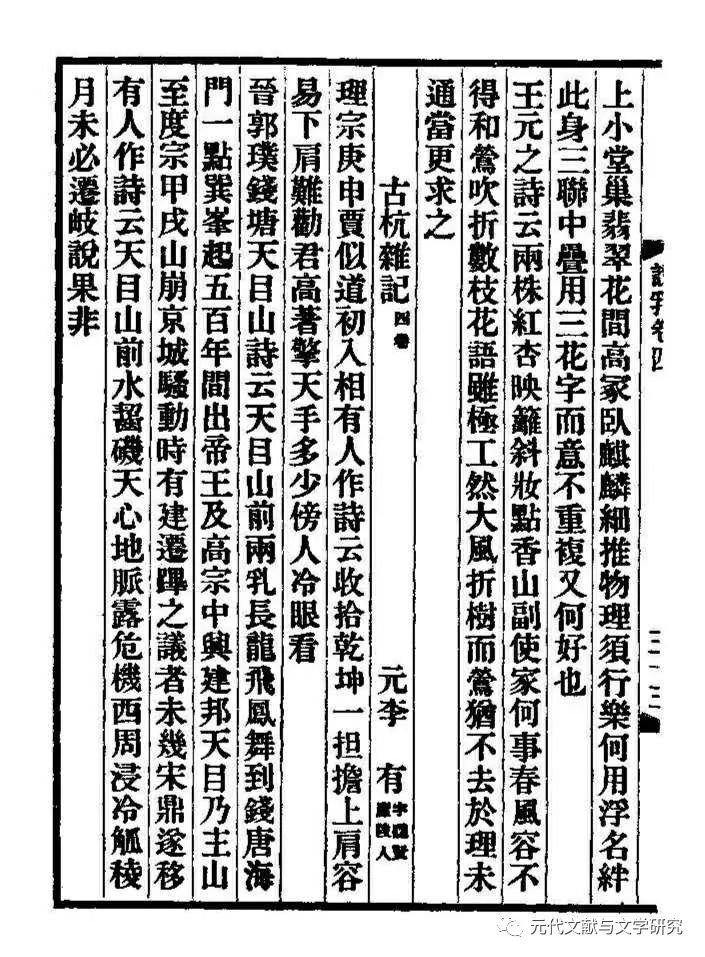 上小堂巢翡翠花間高冢臥麒麟細推物理須行樂何用浮名絆
此身三聯中疊用三花字而意不重複又何好也
王元之詩云兩株紅杏映籬斜妝點香山副使家何事春風容不
得和鶯吹折數枝花語雖極工然大風折樹而鶯猶不去於理未
通當更求之
古杭雜記 四卷 元李 有
理宗庚申賈似道初入相有人作詩云收拾乾坤一担擔上肩容
易下肩難勸君高著擎天手多少傍人冷眼看
晉郭璞錢塘天目山詩云天目山前兩乳長龍飛鳳舞到錢唐海
門一點巽峯起五百年間出帝王及高宗中興建邦天目乃主山
至度宗甲戌山崩京城騷動時有建遷蹕之議者未幾宋鼎遂移
有人作詩云天目山前水齧磯天心地脈露危機西周浸冷觚稜
月未必遷岐說果非
卷四
元代文献与文学研究